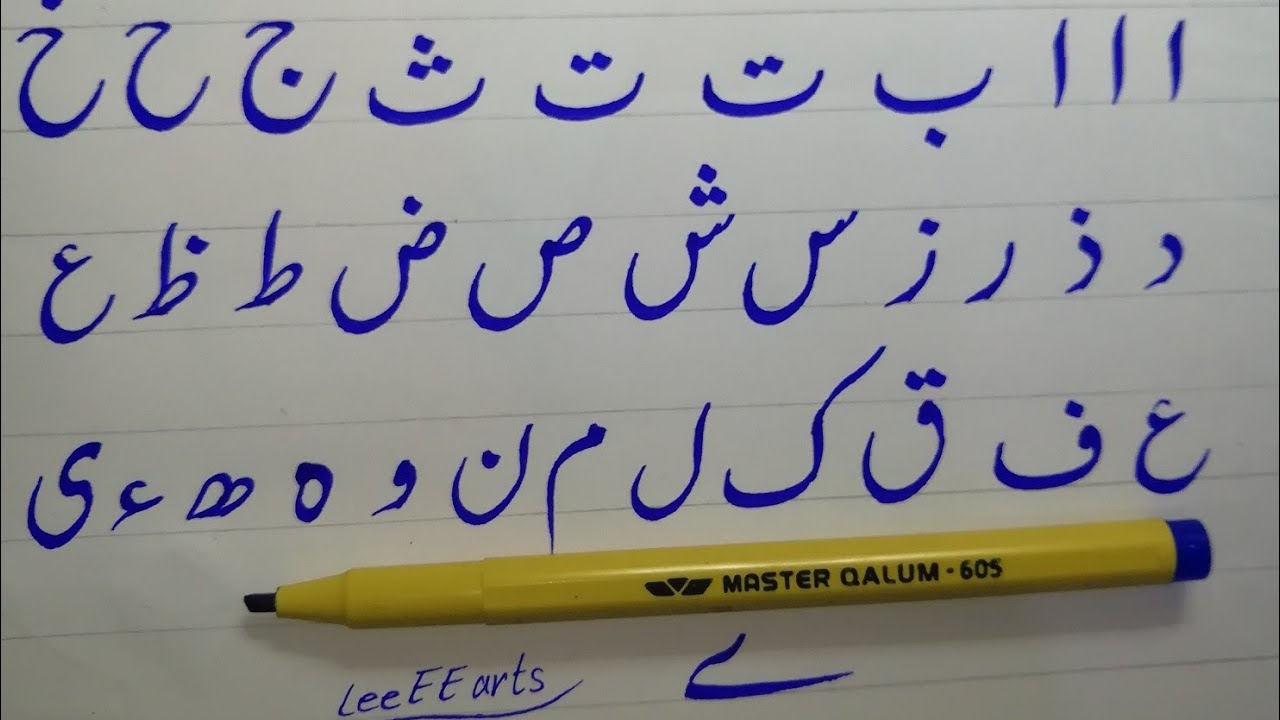 ا ا ا ب ت ت ث ج ح خ
د ذ ر ز س ش ص ض ط ظ ع
ع ف ق ک ل م ن و ہ ھ ء ی
MASTER QALUM - 605
ے
LeeEE arts